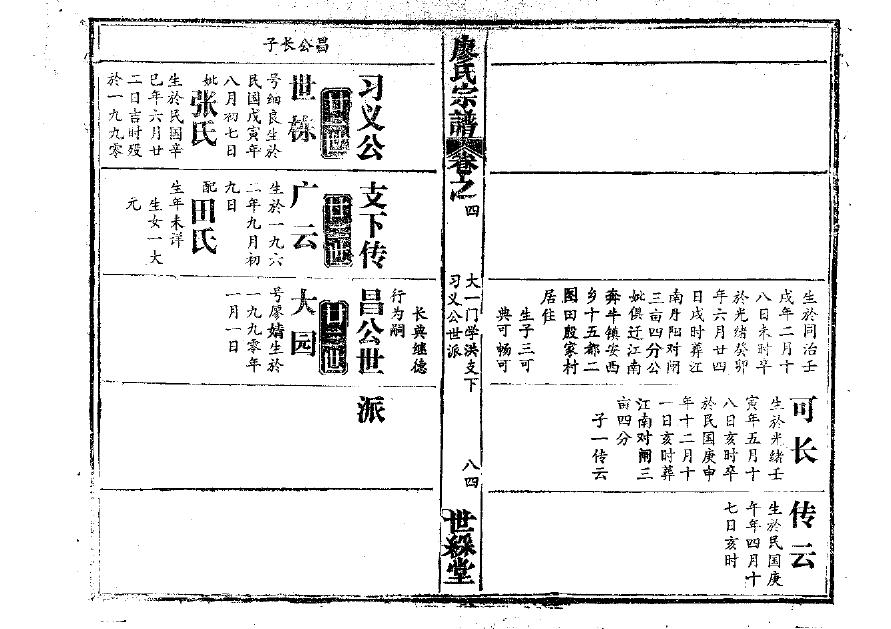 生於同治壬
戌年二月十
八日未时卒
於光绪癸卯
年六月廿四
日戌时葬江
南丹阳对闸
三亩四分公
妣俱迁江南
奔牛镇安西
乡十五都二
图田殷家村
居住
生子三可
典可畅可
长典继德
行为嗣
可长
生於光绪壬
寅年五月十
八日亥时卒
於民国庚申
年十二月十
一日亥时葬
江南对闸三
亩四分
子一传云
传云
生於民国庚
午年四月十
七日亥时
廖氏宗譜
卷之四
大一门学洪支下
习义公世派
八四
世綵堂
习义公支下传昌公世派
昌公长子
世
号细良生於
民国戊寅年
八月初七日
妣张氏
生於民国辛
巳年六月廿
二日吉时殁
於一九九零
廿二世
广云
生於一九六
二年九月初
九日
配田氏
生年未详
生女一大
元
廿三世
大园
号廖婧生於
一九九零年
一月一日